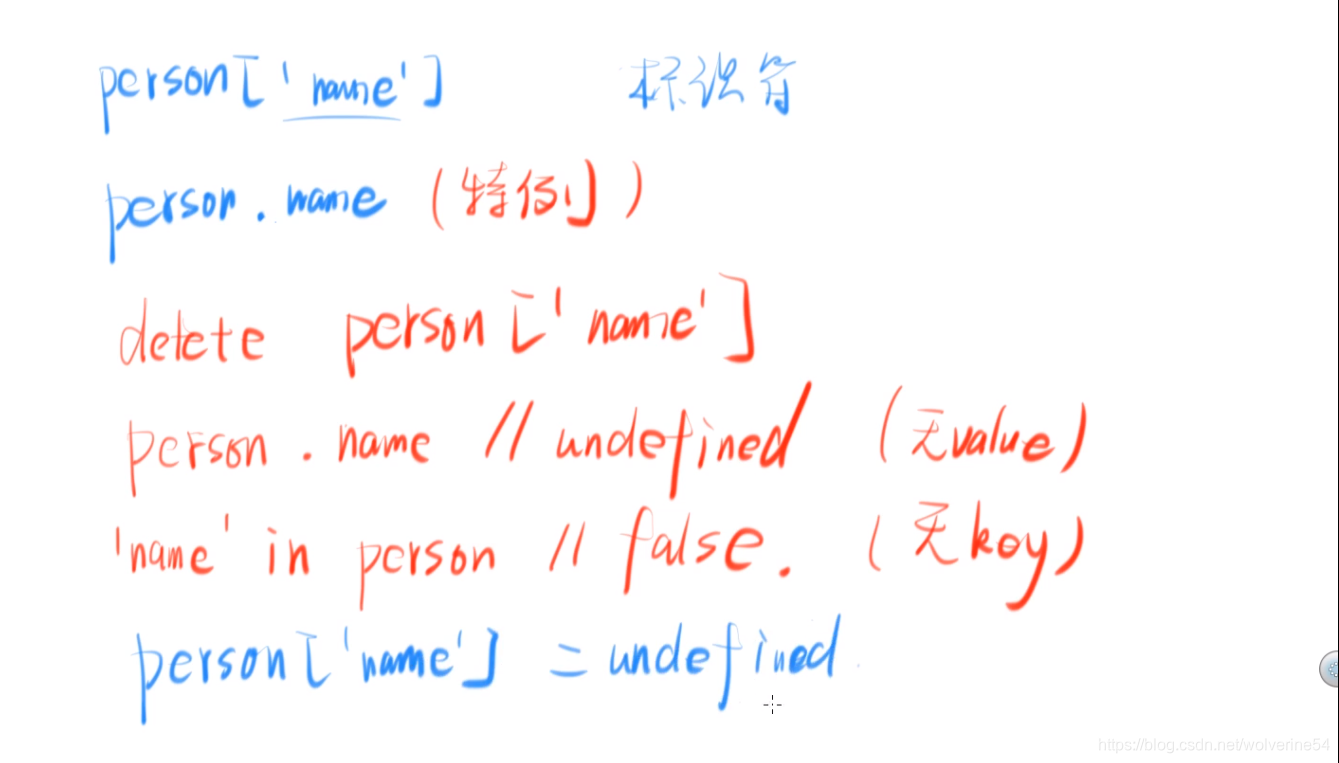 person['name'] 标识符
person.name (特例)
delete person['name']
person.name // undefined (无value)
'name' in person // false. (无key)
person['name'] = undefined
https://blog.csdn.net/wolverine54